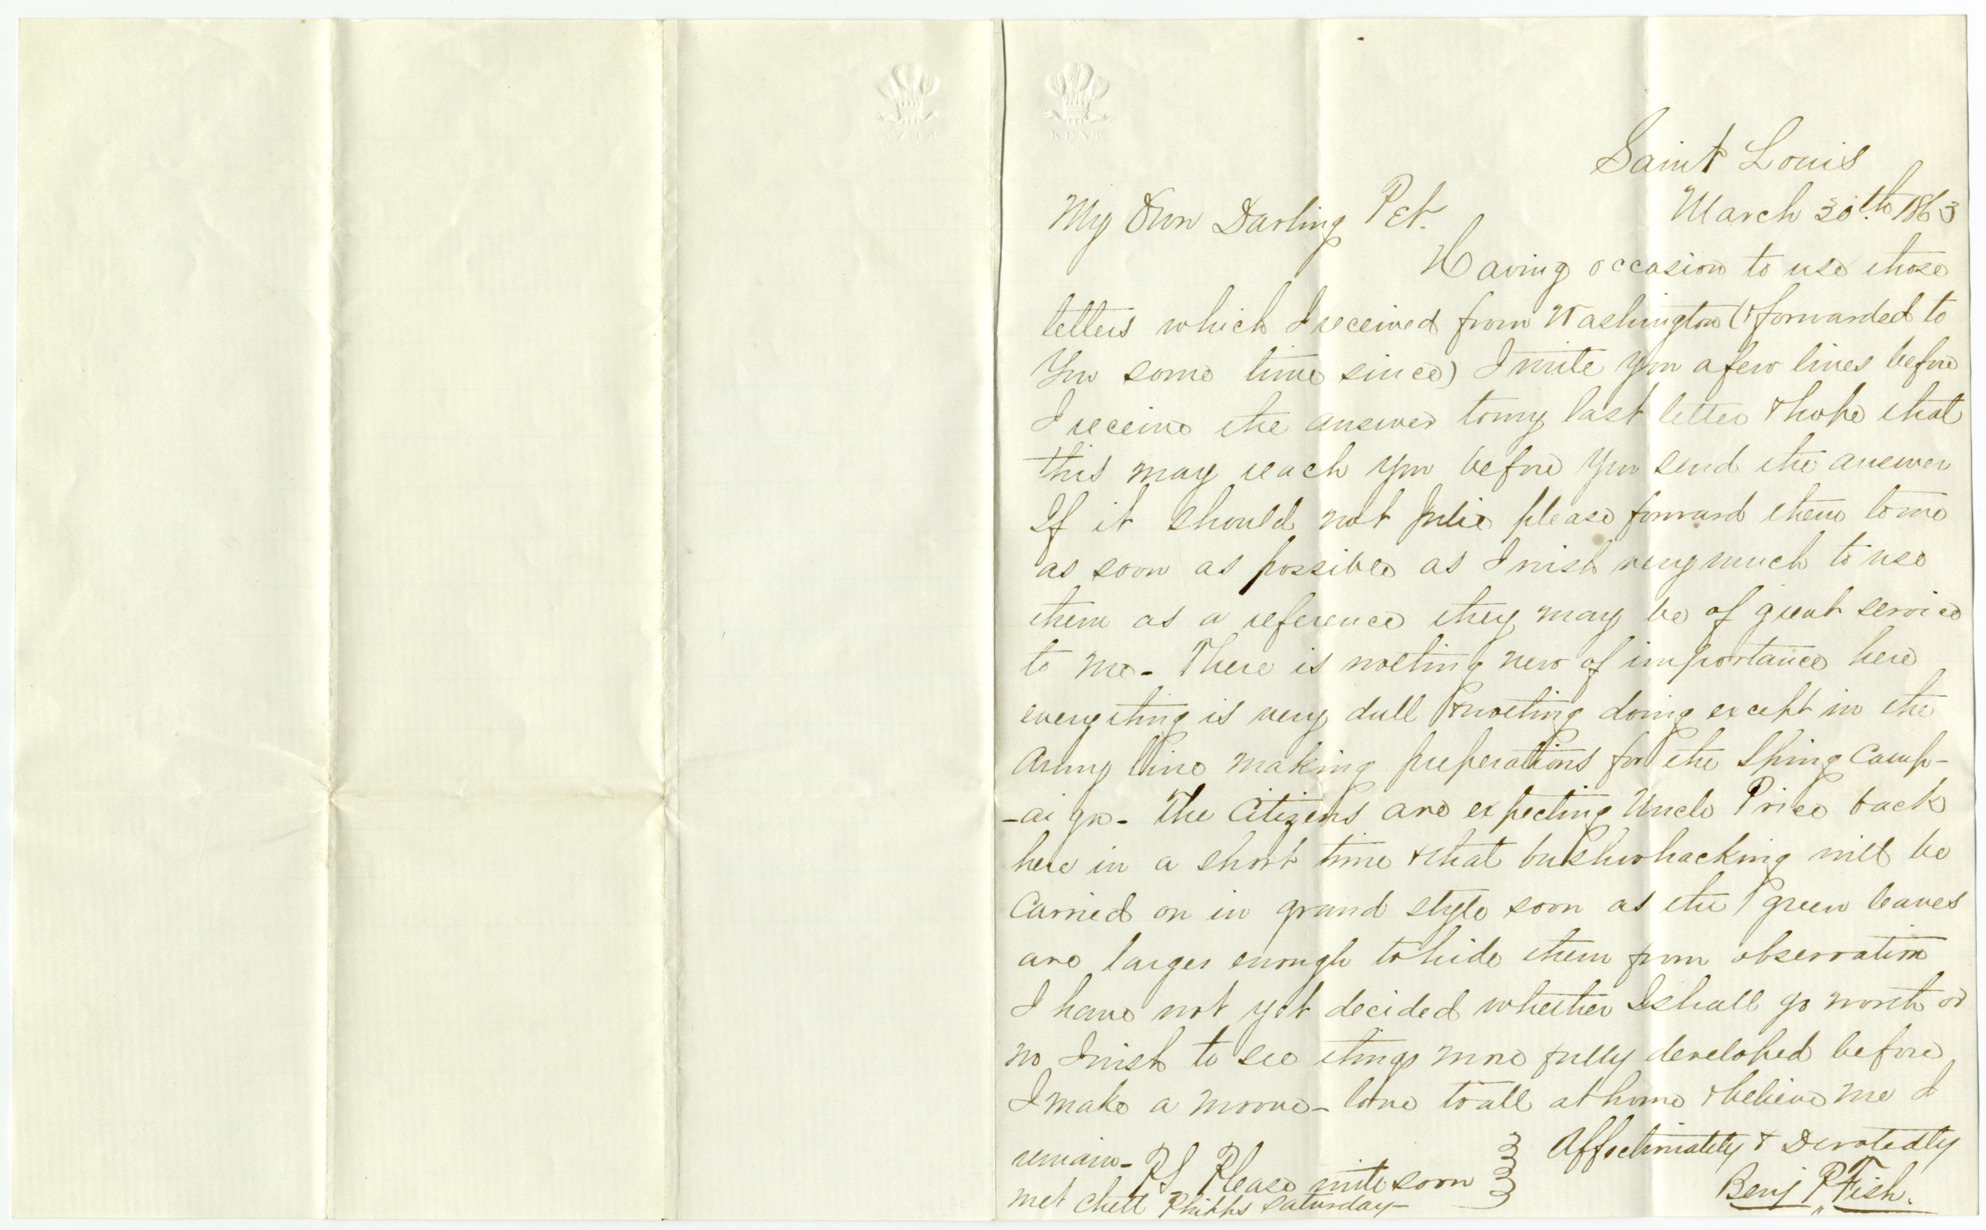 Saint Louis
March 30th 1863
My Own Darling Pet.
Having occasion to use those
letters which I received from Washington (& forwarded to
You some time since) I write you a few lines before
I receive the answer to my last letter & hope that
this may reach you before you send the answer
If it should not Julie please forward them to me
as soon as possible as I wish very much to use
them as a reference they may be of great service
to me - There is nothing new of importance here
everything is very dull & nothing doing except in the
Army line making preperations for the Spring Camp-
-aign - The Citizens are expecting Uncle Price back
here in a short time & that bushwhacking will be
Carried on in grand style soon as the green leaves
are larger enough to hide them from observation
I have not yet decided whether I shall go North or
no I wish to see things more fully developed before
I make a moove - love to all at home & believe me I
remain - Affectionately & Devotedly
Benj P. Fish.
P.S. Please write soon
met Chett Phipps Saturday -